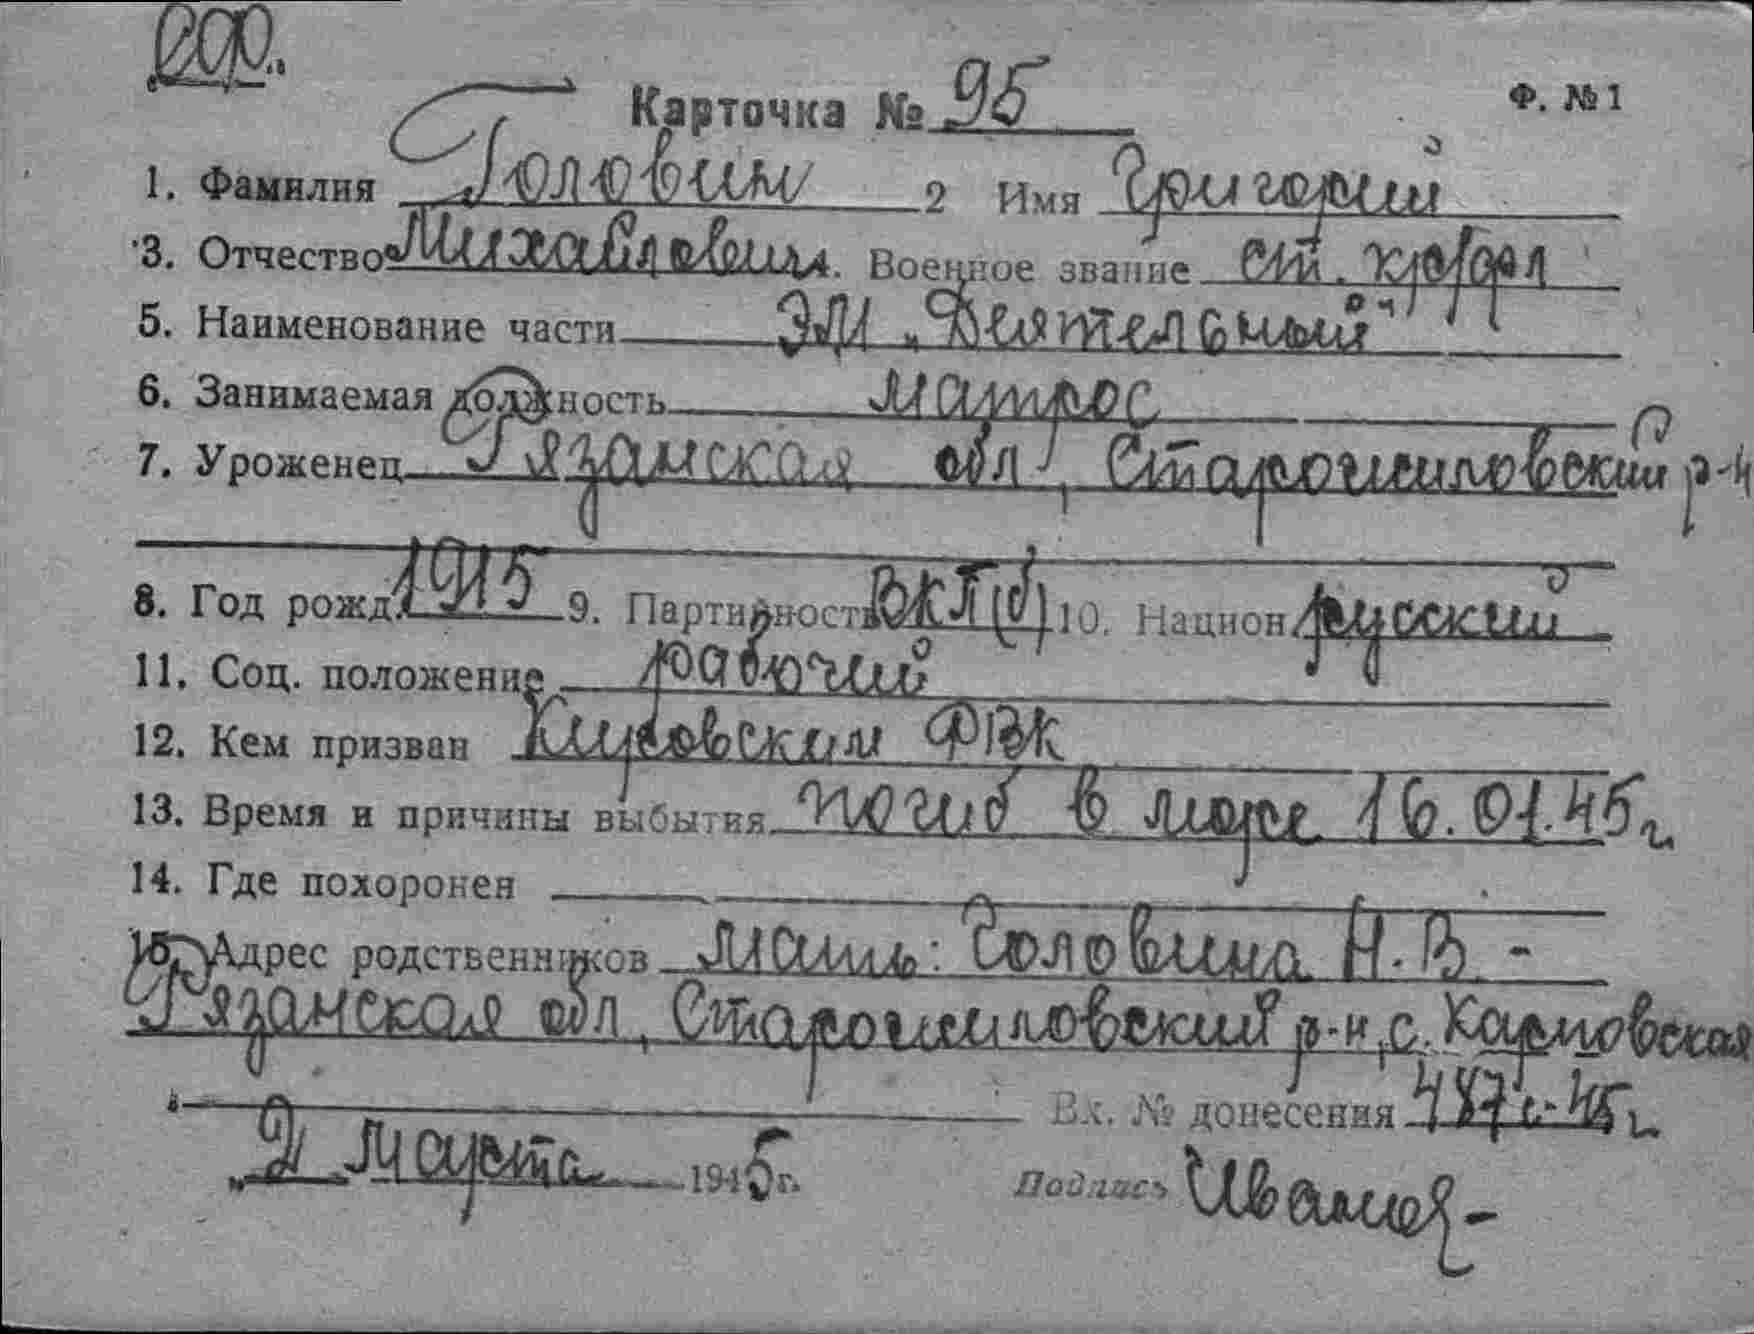 Карточка № 95 Ф. № 1
1. Фамилия Головин 2 Имя Григорий
3. Отчество Михайлович. Военное звание ст. кр/фл
5. Наименование части ЭМ „Деятельный"
6. Занимаемая должность матрос
7. Уроженец Рязанская обл, Старожиловский р-н
8. Год рожд. 1915 9. Партийность ВКП(б) 10. Национ. русский
11. Соц. положение рабочий
12. Кем призван Кировским ФВК
13. Время и причины выбытия погиб в море 16.01.45г.
14. Где похоронен
15. Адрес родственников мать: Головина Н. В. -
Рязанская обл, Старожиловский р-н, с. Карповская
Вх. № донесения 487с-45г.
„2" марта 1945г. Подпись Иванов-